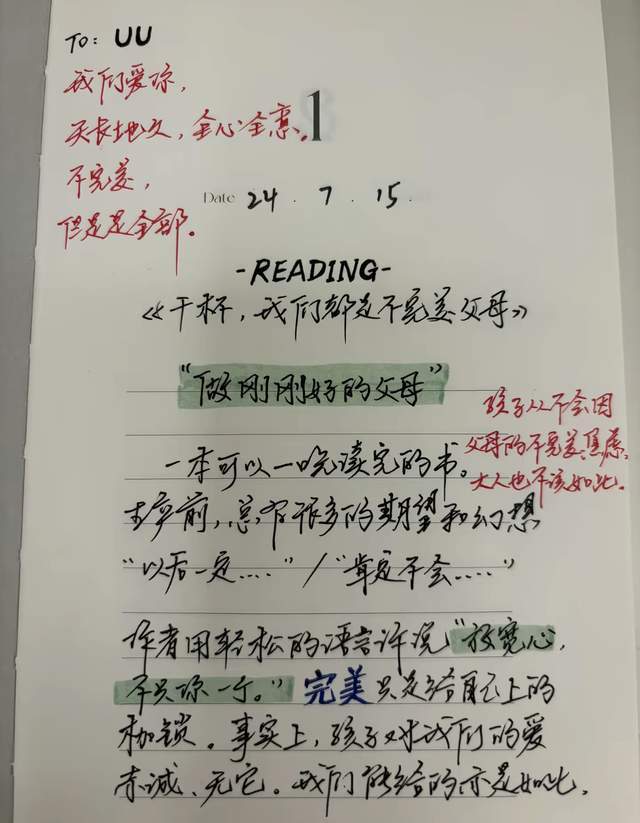 To: UU
我们爱你,
天长地久,全心全意。
不完美,
但是是全部。
1
Date 24.7.15.
-READING-
《干杯,我们都是不完美父母》
“做刚刚好的父母”
孩子从不会因
父母的不完美焦虑,
大人也不该如此。
一本可以一口气读完的书。
生产前,总有很多的期望和幻想
“以后一定....”/“肯定不会.....”
作者用轻松的语言诉说“放宽心,
不只你一个。”完美只是给自己上的
枷锁。事实上,孩子对我们的爱
赤诚、无它。我们能给的亦是如此,